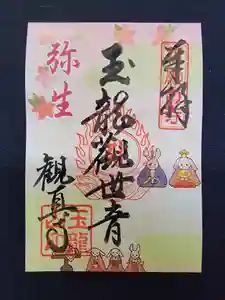 奉拝
弥生
玉龍觀世音
観真寺
玉龍